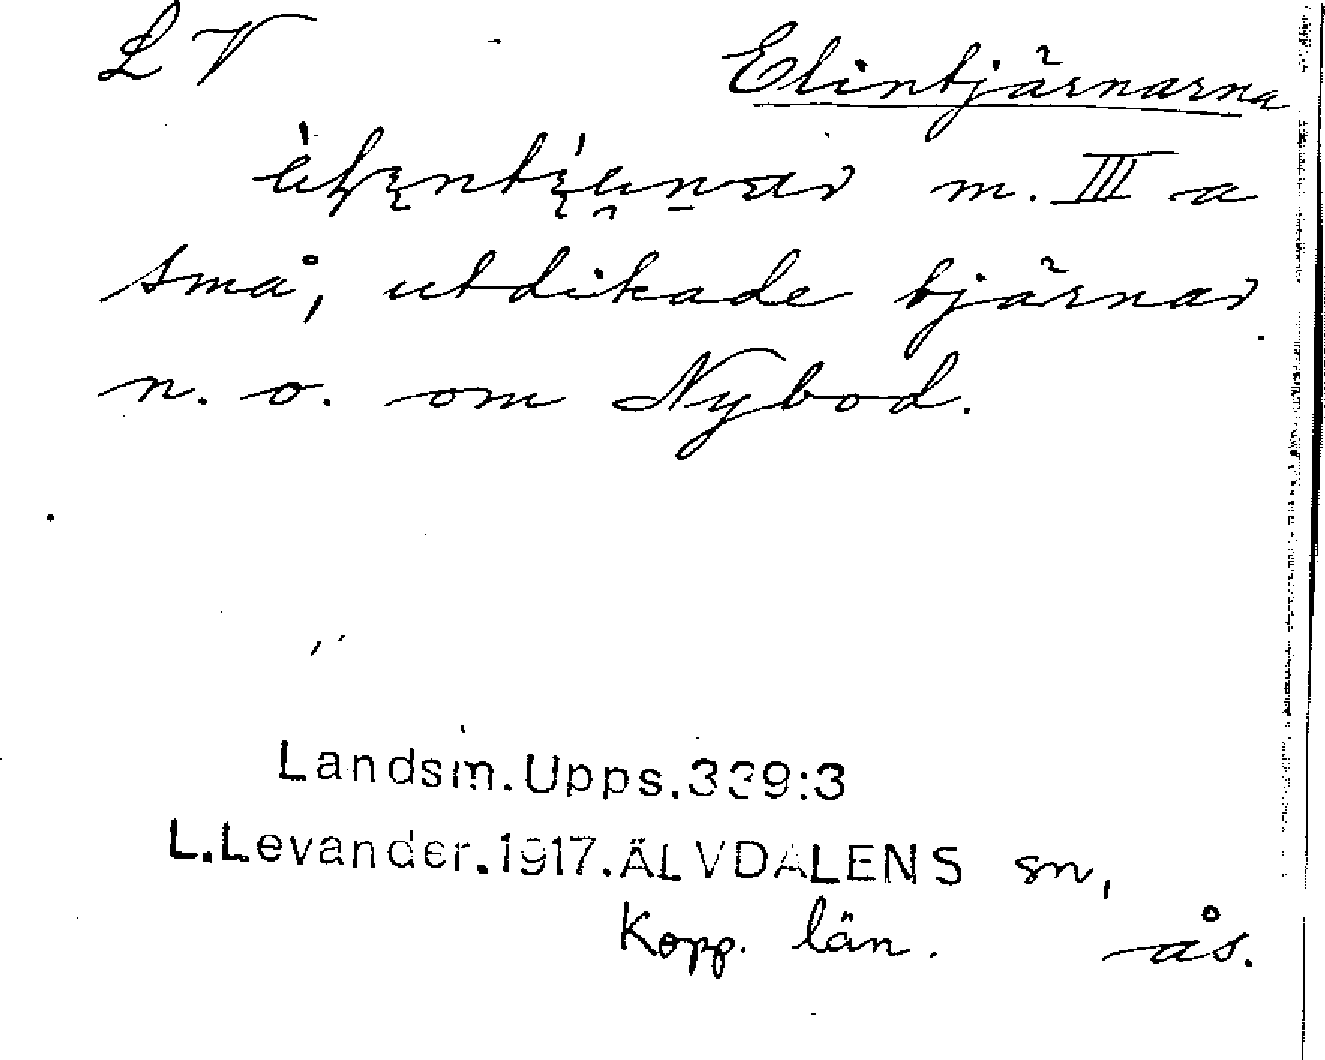 LV Elintjärnarna
m. III a
små, utdikade tjärnar
n. o. om Nybod.
Landsm.Upps.339:3
L.Levander.1917.ÄLVDALENS sn,
Kopp. län. ås.